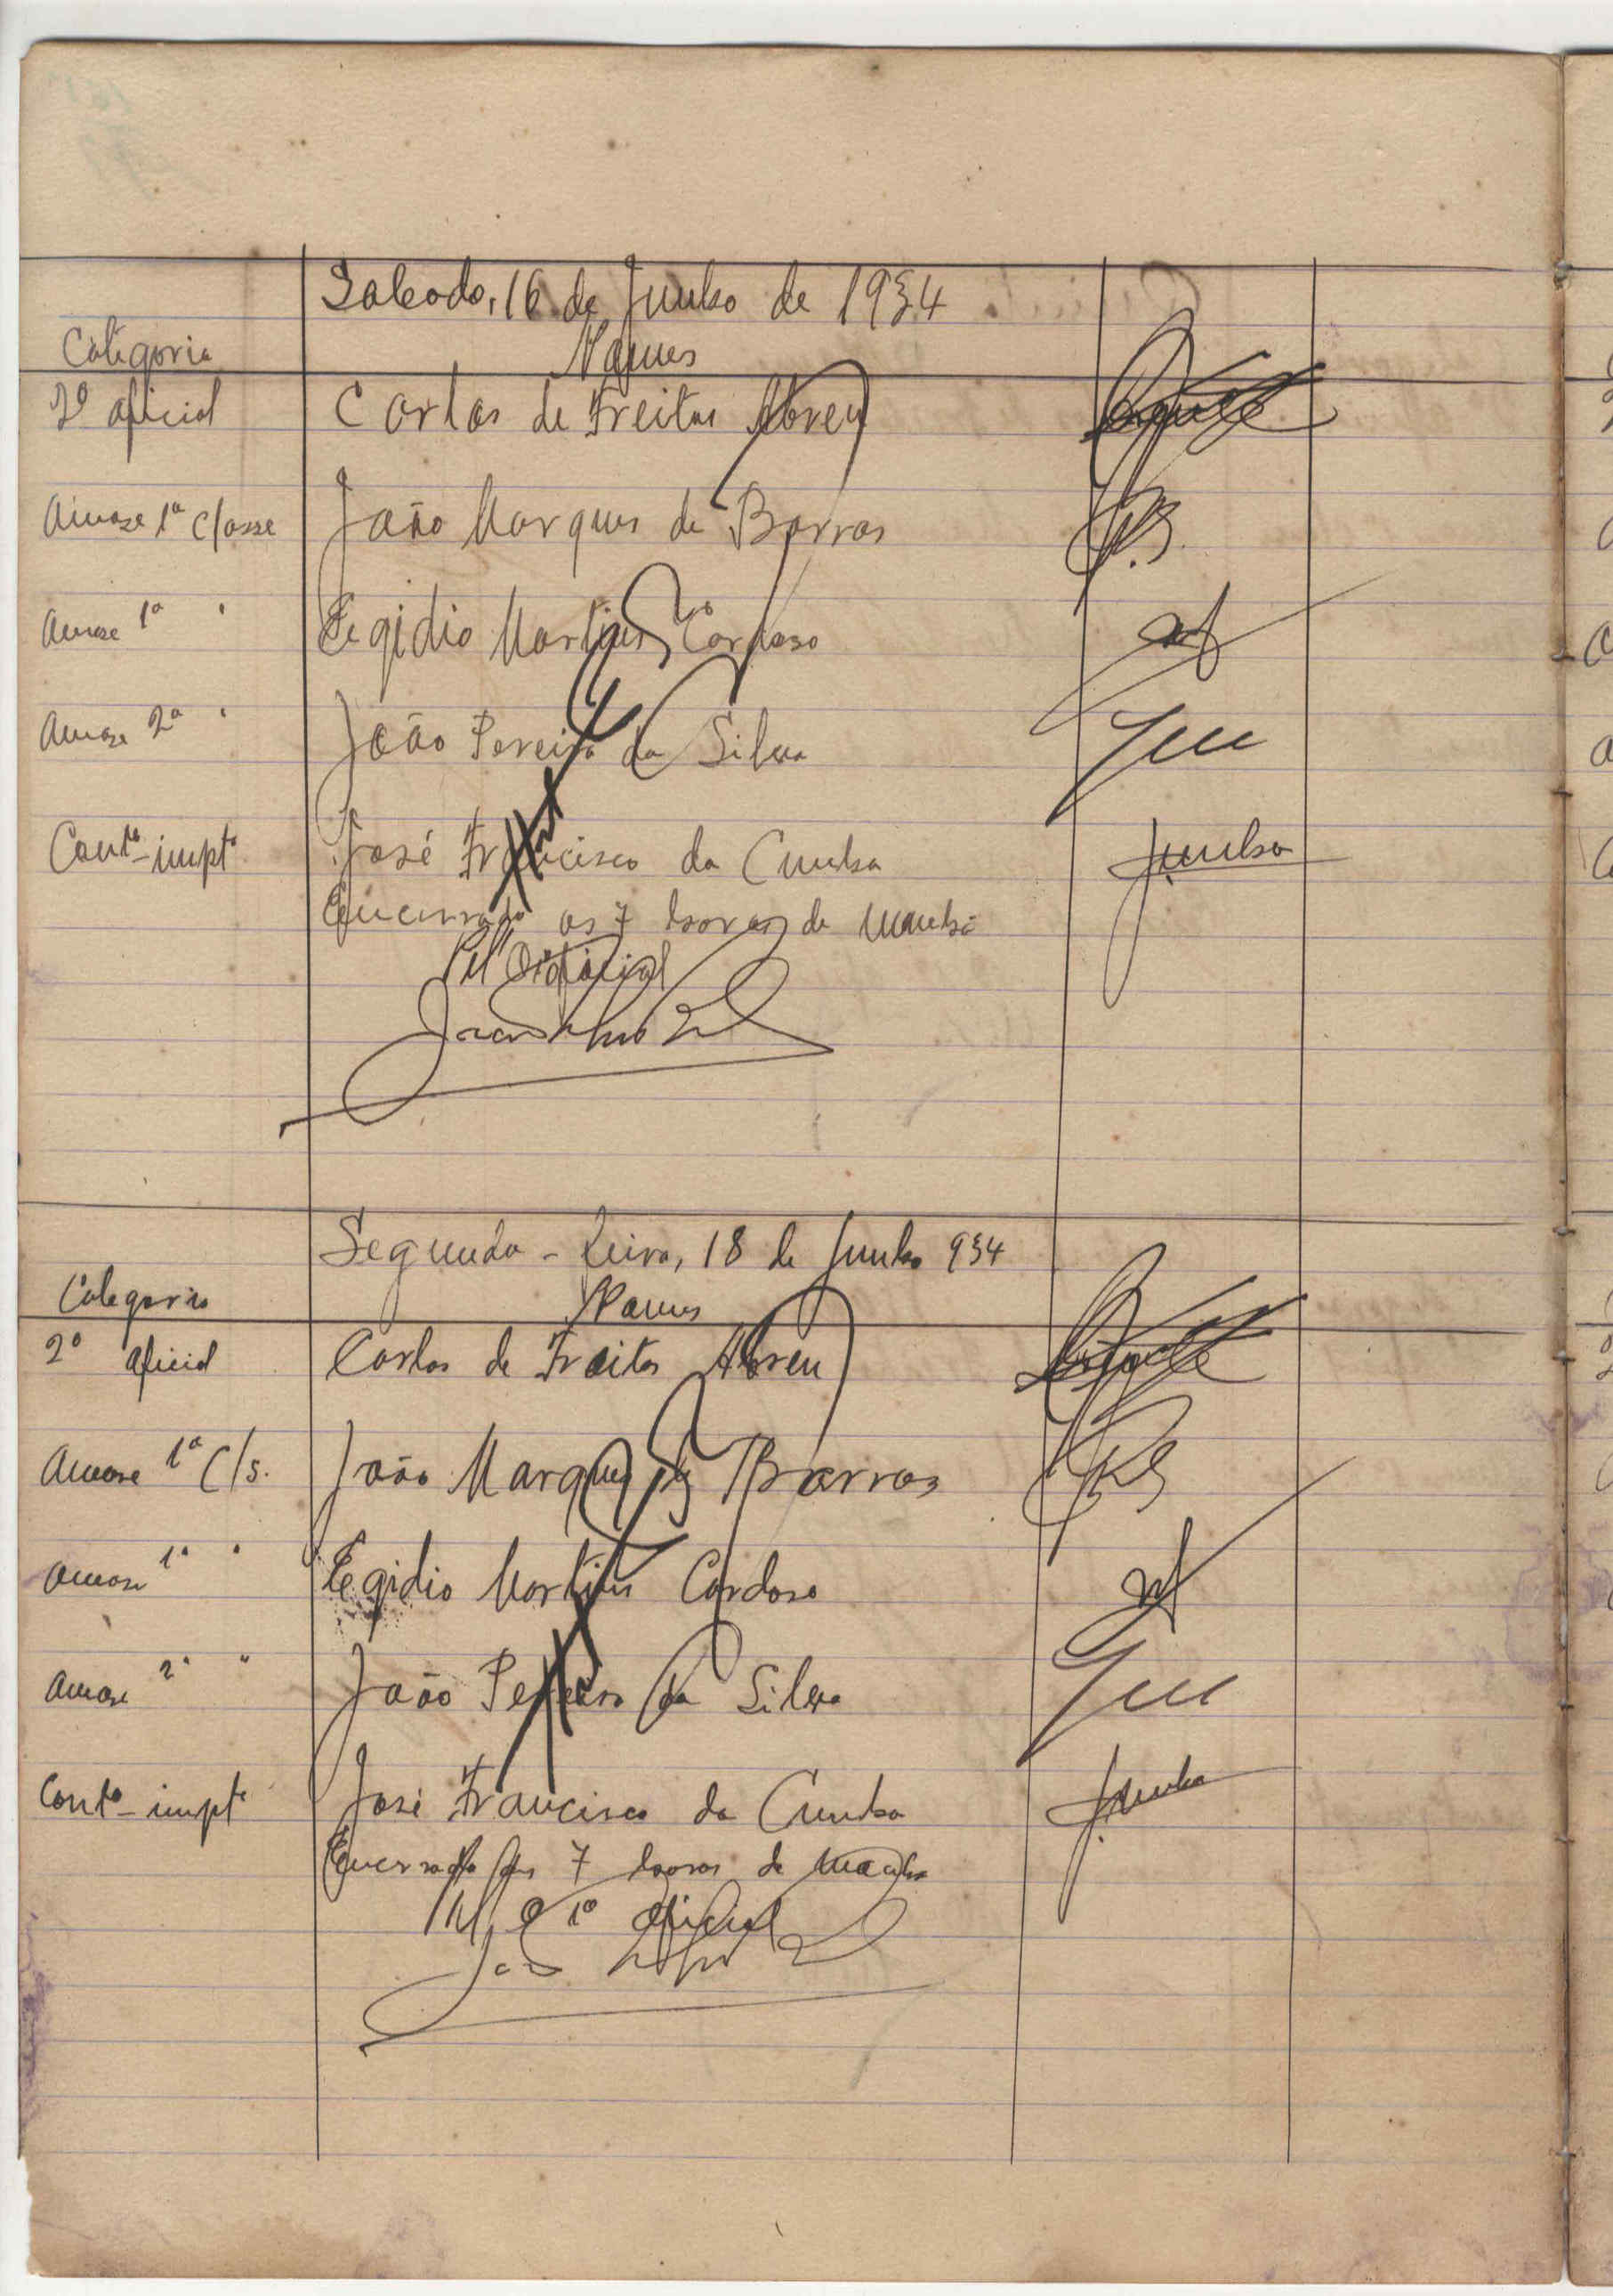 Sabado, 16 de Junho de 1934
Categoria Nomes
2º oficial Carlos de Freitas Abreu
Amase 1ª classe João Marques de Barros J.B.
Amase 1ª " Egidio Martins Cardoso
Amase 2ª " João Pereira da Silva
Contº impt.º José Francisco da Cunha JCunha
Encerrado as 7 horas da manhã
oficial
Segunda-feira, 18 de Junho 934
Categoria Nomes
2º oficial Carlos de Freitas Abreu
Amase 1ª C/s. João Marques de Barros
Amase 1ª " Egidio Martins Cardoso
Amase 2ª " João Pereira da Silva
Contº impt.º José Francisco da Cunha J.Cunha
Encerrado as 7 horas da manhã
O 1º oficial